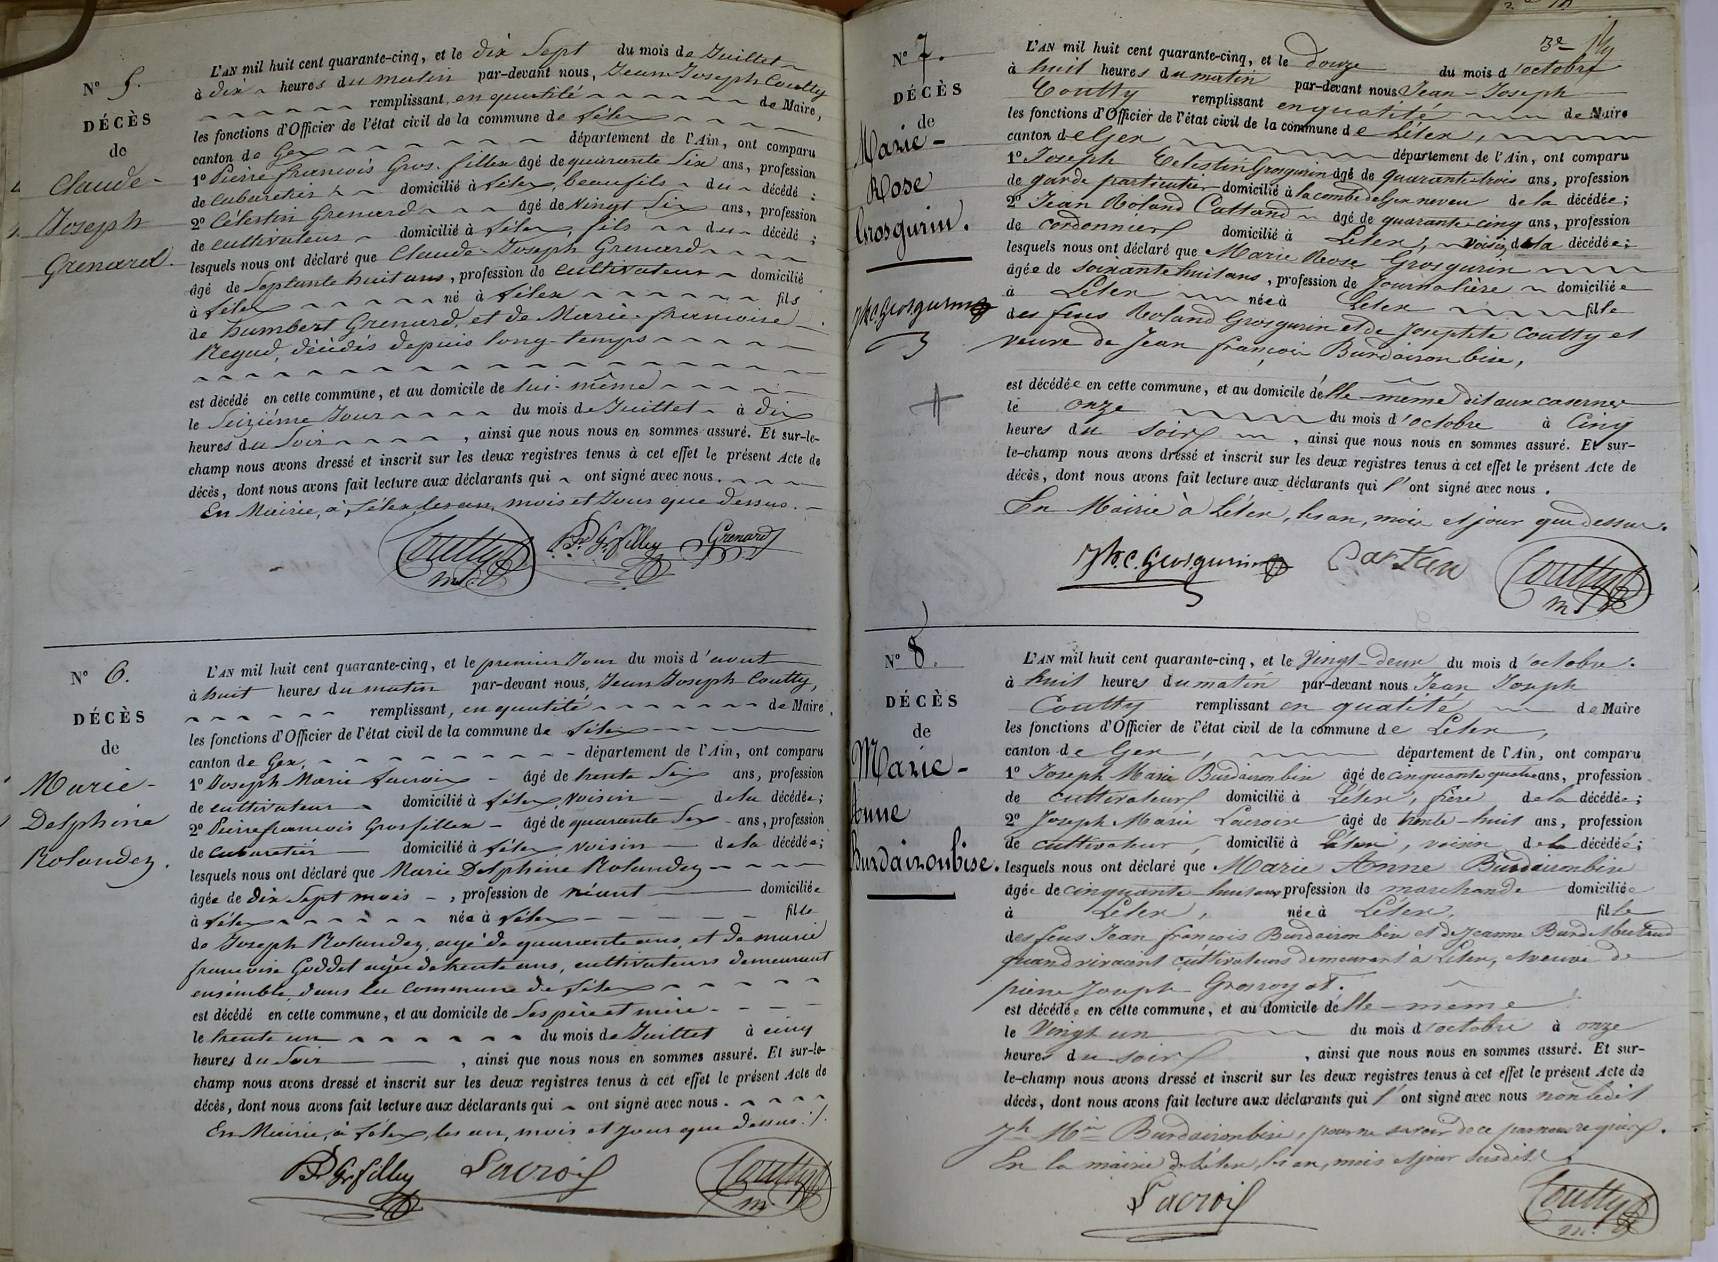 N° 5.
DÉCÈS
de
Claude-
Joseph
Grenard.
L'AN mil huit cent quarante-cinq, et le dix Sept du mois de Juillet
à dix heures du matin par-devant nous, Jean Joseph Coutty
remplissant, en quantité de Maire,
les fonctions d'Officier de l'état civil de la commune de Lélex
canton de Gex département de l'Ain, ont comparu
1° Pierre françois Gros-fillex âgé de quarante Six ans, profession
de cabaretier domicilié à Lélex, beau fils du décédé ;
2° Célestin Grenard âgé de Vingt Six ans, profession
de cultivateur domicilié à Lélex, fils du décédé ;
lesquels nous ont déclaré que Claude-Joseph Grenard
âgé de Septante huit ans, profession de cultivateur domicilié
à Lélex né à Lélex fils
de humbert Grenard, et de Marie-francoise
Regad, décédés depuis long-temps
est décédé en cette commune, et au domicile de lui-même
le Seizième Jour du mois de Juillet à dix
heures du Soir , ainsi que nous nous en sommes assuré. Et sur-le-
champ nous avons dressé et inscrit sur les deux registres tenus à cet effet le présent Acte de
décès, dont nous avons fait lecture aux déclarants qui ont signé avec nous.
En Mairie, à Lélex, les an, mois et Jour que dessus.
Coutty
Grenard
N° 6.
DÉCÈS
de
Marie-
Delphine
Rolandez.
L'AN mil huit cent quarante-cinq, et le premier Jour du mois d'aout
à huit heures du matin par-devant nous, Jean Joseph Coutty,
remplissant, en quantité de Maire,
les fonctions d'Officier de l'état civil de la commune de Lélex
canton de Gex, département de l'Ain, ont comparu
1° Joseph Marie Lacroix âgé de trente Six ans, profession
de cultivateur domicilié à Lélex, voisin de la décédée;
2° Pierre francois Grosfillex âgé de quarante Six ans, profession
de cabaretier domicilié à Lélex voisin de la décédée;
lesquels nous ont déclaré que Marie Delphine Rolandez
âgée de dix Sept mois , profession de néant domiciliée
à Lélex née à Lélex fille
de Joseph Rolandez, agé de quarante ans, et de marie
francoise Goddet agée de trente ans, cultivateurs demeurant
ensemble, dans la commune de Lélex
est décédé en cette commune, et au domicile de Ses père et mère
le trente un du mois de Juillet à cinq
heures du Soir , ainsi que nous nous en sommes assuré. Et sur-le-
champ nous avons dressé et inscrit sur les deux registres tenus à cet effet le présent Acte de
décès, dont nous avons fait lecture aux déclarants qui ont signé avec nous.
En Mairie, à Lélex, les an, mois et Jour que dessus ./.
Lacroix
Coutty
N° 7.
DÉCÈS
de
Marie-
Rose
Grosgurin.
Jh C. Grosgurin
3e
L'AN mil huit cent quarante-cinq, et le douze du mois d'octobre
à huit heures du matin par-devant nous Jean-Joseph
Coutty remplissant en qualité de Maire
les fonctions d'Officier de l'état civil de la commune de Lélex,
canton de Gex département de l'Ain, ont comparu
1° Joseph Celestin Grosgurin âgé de quarante-trois ans, profession
de garde particulier domicilié à la combe de Gex neveu de la décédée;
2° Jean Roland Cattand âgé de quarante-cinq ans, profession
de cordonnier domicilié à Lélex, voisin de la décédée;
lesquels nous ont déclaré que Marie Rose Grosgurin
âgée de soixante huit ans, profession de Journalière domiciliée
à Lélex née à Lélex fille
des feus Roland Grosgurin et de Josephte Coutty et
veuve de Jean françois Burdaironbise,
est décédée en cette commune, et au domicile d'elle-même dit aux casernes
le onze du mois d'octobre à Cinq
heures du soir , ainsi que nous nous en sommes assuré. Et sur-
le-champ nous avons dressé et inscrit sur les deux registres tenus à cet effet le présent Acte de
décès, dont nous avons fait lecture aux déclarants qui l'ont signé avec nous.
En Mairie à Lélex, les an, mois et jour que dessus.
Jh. C. Grosgurin
Coutty
N° 8.
DÉCÈS
de
Marie-
Anne
Burdaironbise.
L'AN mil huit cent quarante-cinq, et le Vingt-deux du mois d'octobre.
à huit heures du matin par-devant nous Jean Joseph
Coutty remplissant en qualité de Maire
les fonctions d'Officier de l'état civil de la commune de Lélex,
canton de Gex, département de l'Ain, ont comparu
1° Joseph Marie Burdaironbise âgé de cinquante quatre ans, profession
de cultivateur domicilié à Lélex, frère de la décédée;
2° Joseph Marie Lacroix âgé de trente-huit ans, profession
de cultivateur, domicilié à Lélex, voisin de la décédée;
lesquels nous ont déclaré que Marie Anne Burdaironbise
âgée de cinquante-huit ans profession de marchande domiciliée
à Lélex, née à Lélex, fille
des feus Jean françois Burdaironbise et de Jeanne
quand vivaient cultivateurs demeurant à Lélex, et veuve de
pierre Joseph Grosroyat.
est décédée en cette commune, et au domicile d'elle-même
le Vingt un du mois d'octobre à onze
heures du soir , ainsi que nous nous en sommes assuré. Et sur-
le-champ nous avons dressé et inscrit sur les deux registres tenus à cet effet le présent Acte de
décès, dont nous avons fait lecture aux déclarants qui l'ont signé avec nous non ledit
Jh Mie Burdaironbise, pour ne savoir de ce par nous requis.
En la mairie de Lélex, les an, mois et jour susdits.
Lacroix
Coutty